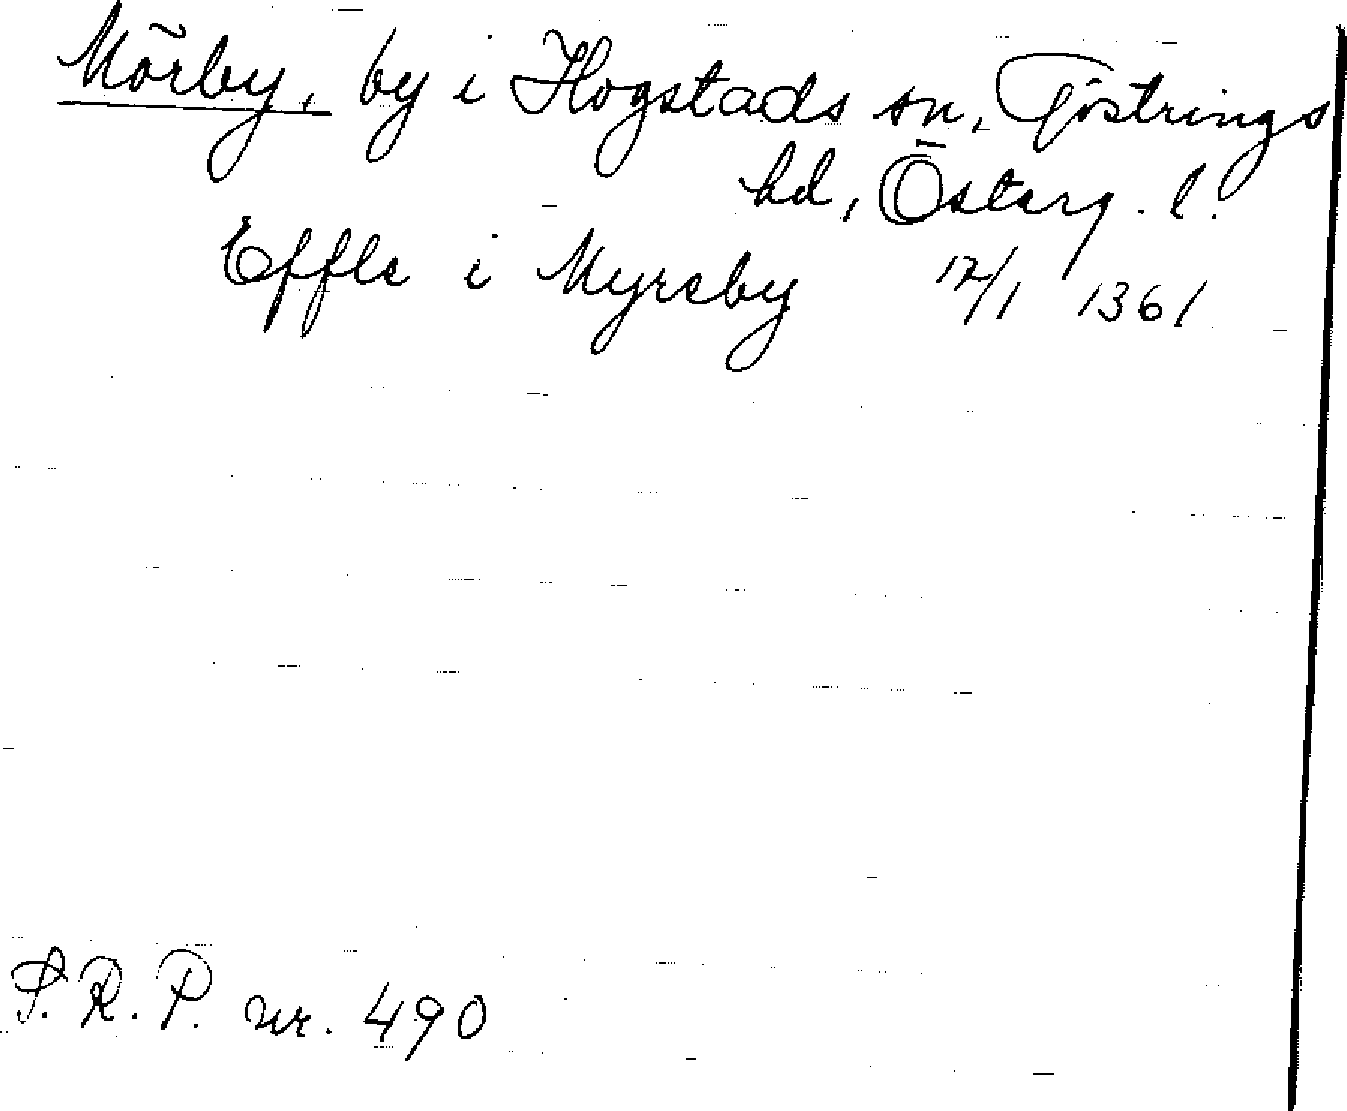 Mörby, by i Hogstads sn, Göstrings
hd, Österg. l.
Effle i Myreby 12/1 1361
S.R.P. nr. 490